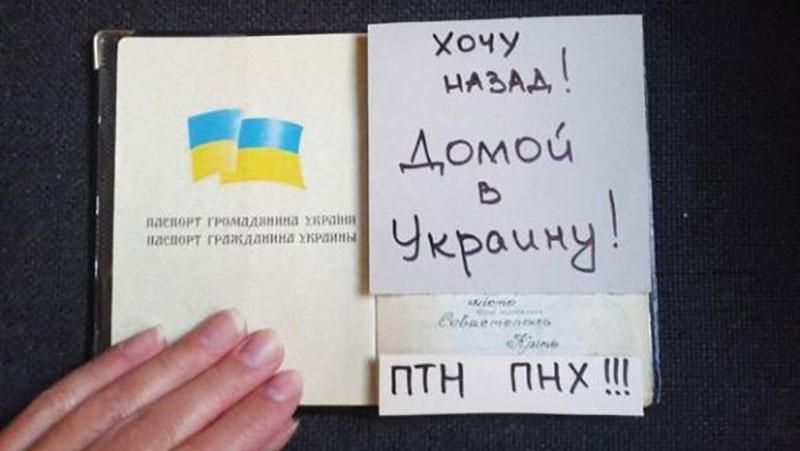 ПАСПОРТ ГРОМАДЯНИНА УКРАЇНИ
ПАСПОРТ ГРАЖДАНИНА УКРАИНЫ
ХОЧУ
НАЗАД!
ДОМОЙ
В
УКРАИНУ!
місто
Севастополь
Крим
ПТН ПНХ!!!